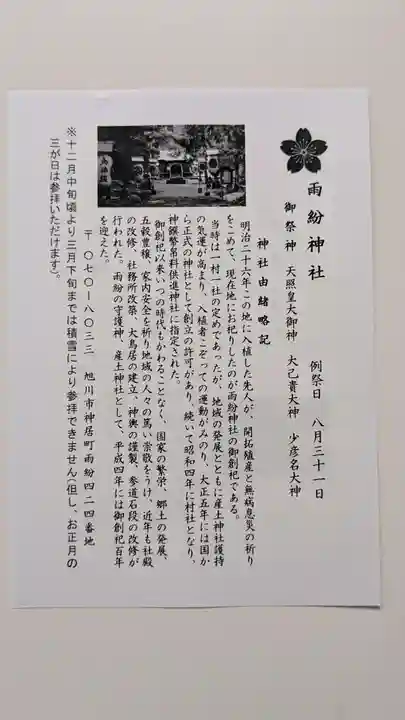 雨紛神社
例祭日　八月三十一日
御祭神　天照皇大御神　大己貴大神　少彦名大神
神社由緒略記
明治二十六年この地に入植した先人が、開拓殖産と無病息災の祈り
をこめて、現在地にお祀りしたのが雨紛神社の御創祀である。
当時は一村一社の定めであったが、地域の発展とともに産土神社護持
の気運が高まり、入植者こぞっての運動がみのり、大正五年には国か
ら正式の神社として創立の許可があり、続いて昭和四年に村社となり、
神饌幣帛料供進神社に指定された。
御創祀以来いつの時代もかわることなく、国家の繁栄、郷土の発展、
五穀豊穣、家内安全を祈り地域の人々の篤い崇敬をうけ、近年も社殿
の改修、社務所改築、大鳥居の建立、神輿の謹製、参道石段の改修が
行われた。雨紛の守護神、産土神社として、平成四年には御創祀百年
を迎えた。
〒〇七〇ー八〇三三　旭川市神居町雨紛四二四番地
※十二月中旬頃より三月下旬までは積雪により参拝できません(但し、お正月の
三が日は参拝いただけます)。